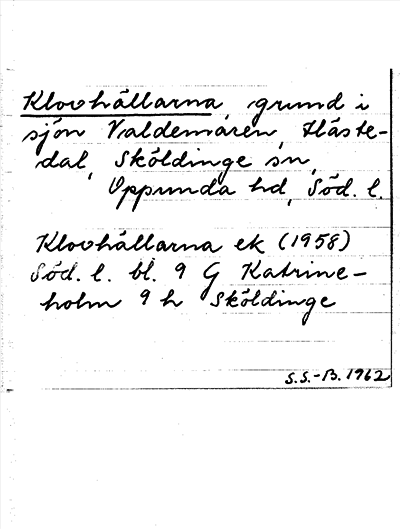 Klovhällarna, grund i
sjön Valdemaren, Häste-
dal, Sköldinge sn,
Oppunda hd, Söd. l.
Klovhällarna ek (1958)
Söd. l. bl. 9 G Katrine-
holm 9 h Sköldinge
S.S.-B. 1962